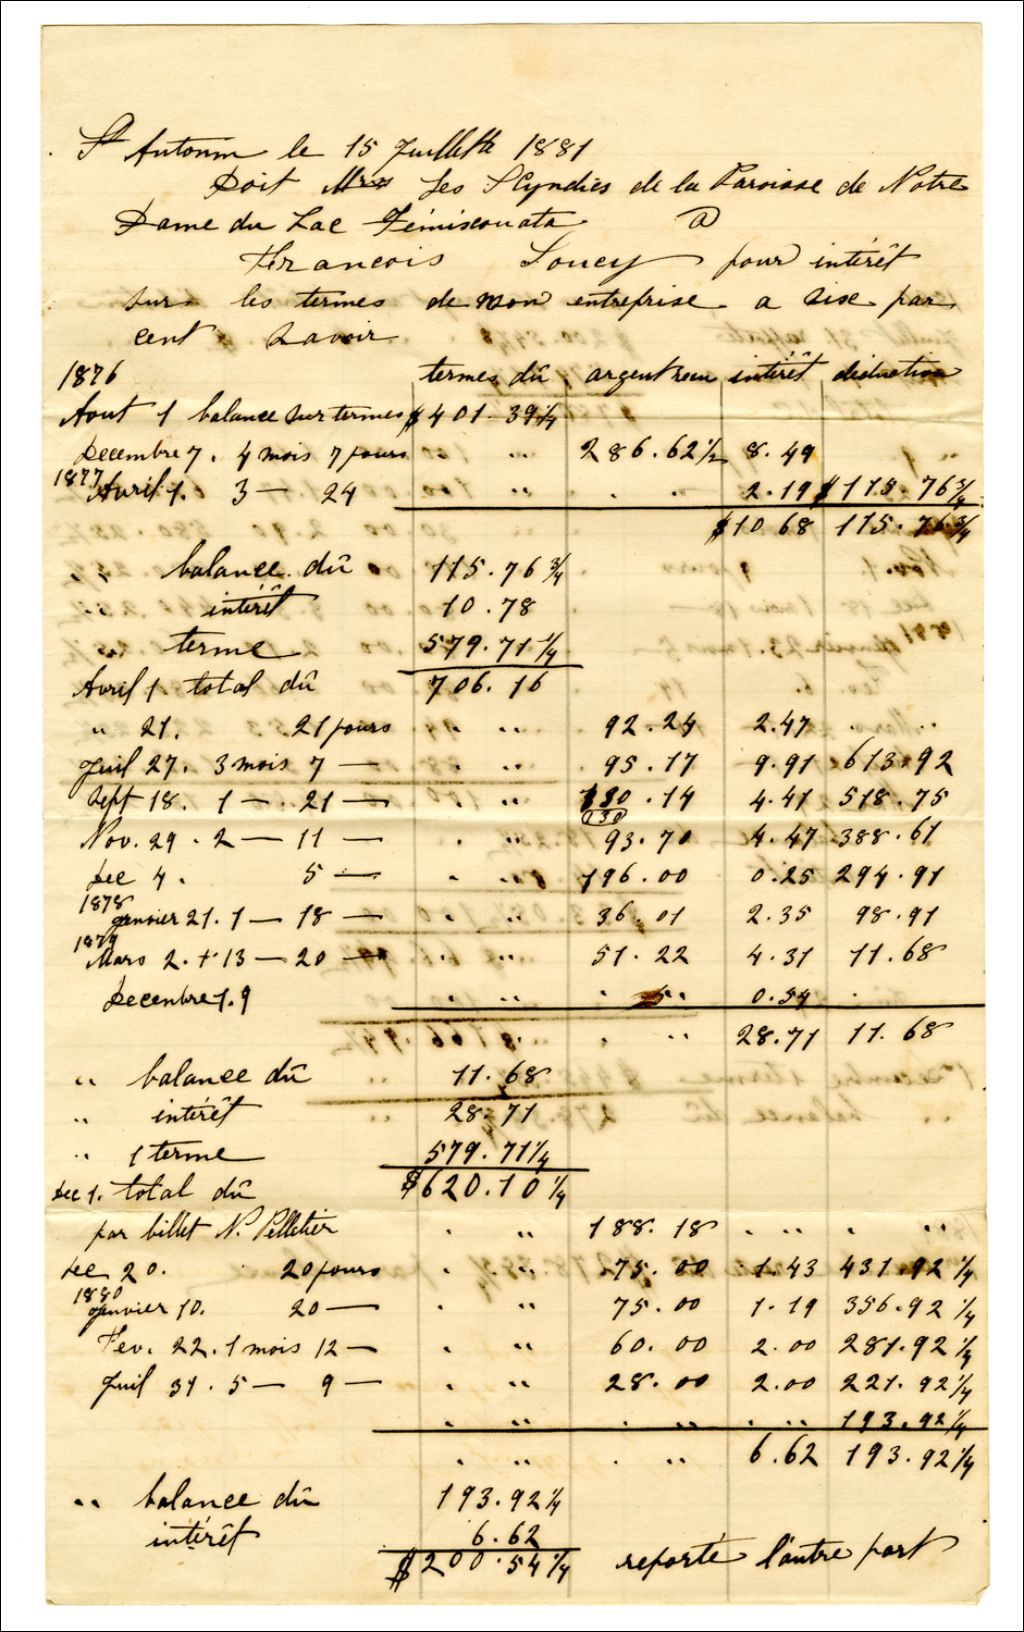 St Antonin le 15 Juilletth 1881
Doit Mrss Les SCyndics de la Paroisse de Notre
Dame du Lac Témiscouata @
Francois Soucy pour intérêt
sur les termes de mon entreprise a six par
cent Savoir
1876 termes dû argent recu intérêt déduction
Aout 1 balance sur termes $401.39 1/4
Decembre 7. 4 mois 7 jours " 286.62 1/2 8.49
1877
Avril 1. 3 — 24 " . . 2.19 $115.76 3/4
$10 68 115.76 3/4
balance dû 115.76 3/4
" intérêt 10.78
terme 579.71 1/4
Avril 1 total dû 706.16
" 21. 21 jours . " 92.24 2.47 . .
Juil 27. 3 mois 7 — . " 95.17 9.91 613.92
Sept 18. 1 — . 21 — . " 130.14 4.41 518.75
130
Nov. 29. 2 — 11 — . " 93.70 4.47 388.61
Dec 4. 5 — . " 196.00 0.25 294.91
1878
Janvier 21. 1 — 18 — . " 36.01 2.35 98.91
1879
Mars 2. + 13 — 20 — . " 51.22 4.31 11.68
Decenbre 1. 9 . " . " 0.54 .
. " . " 28.71 11.68
" balance dû 11.68
" intérêt 28.71
" 1 terme 579.71 1/4
Dec 1. total dû $620.10 1/4
par billet N. Pelletier . " 188.18 . " . "
Dec 20. 20 jours . " 75.00 1.43 431.92 1/4
1880
Janvier 10. 20 — . " 75.00 1.19 356.92 1/4
Fev. 22. 1 mois 12 — . " 60.00 2.00 281.92 1/4
Juil 31. 5 — 9 — . " 28.00 2.00 221.92 1/4
. " . " . " 193.92 1/4
. " . " 6.62 193.92 1/4
" balance dû 193.92 1/4
intérêt 6.62
$200.54 1/4 reporté l'autre part